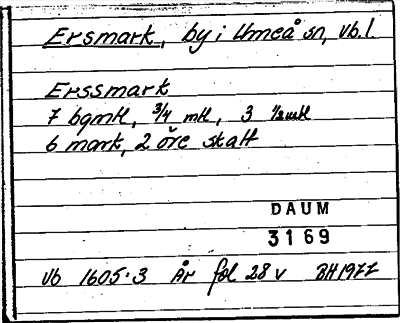 Ersmark, by i Umeå sn, Vb.l.
Erssmark
7 bgmtl, 3/4 mtl, 3 1/2 mtl
6 mark, 2 öre skatt
DAUM
3169
Vb 1605:3 År fol 28 v BH 1977